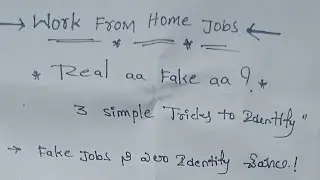 → Work From Home Jobs ←
* Real aa Fake aa ?. *
3 simple Tricks to Identify"
→ Fake Jobs ని ఎలా Identify చేయాలి.!